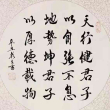 天行健君子
以自強不息
地勢坤君子
以厚德載物